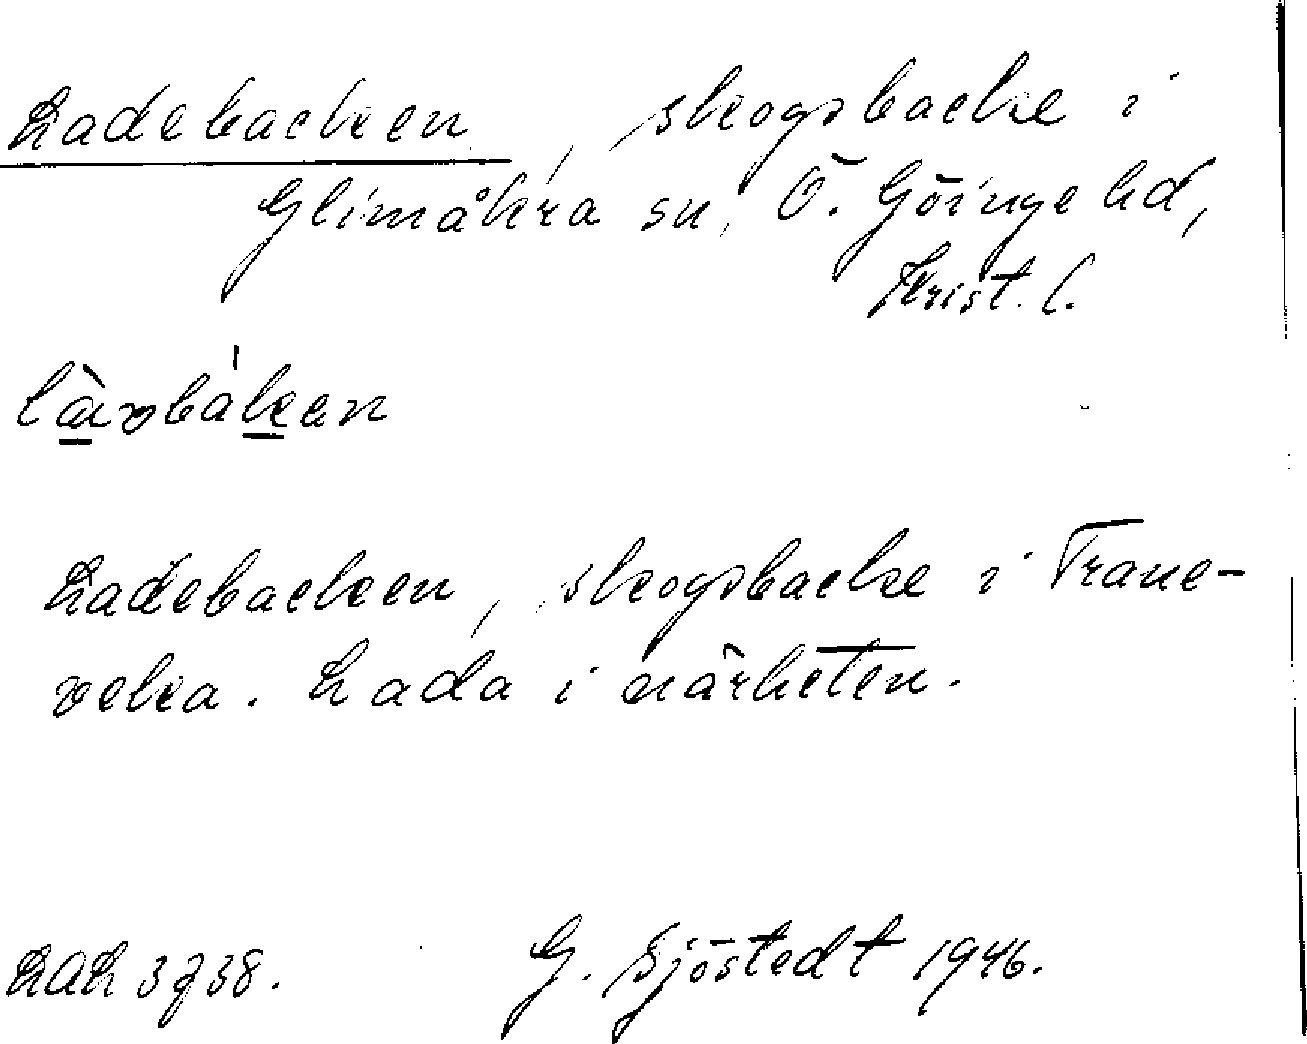 Ladebacken, skogsbacke i
Glimåkra sn, Ö. Göinge hd,
Krist. l.
Ladebacken, skogsbacke i Trane-
velva. Lada i närheten.
LAL 3738. G. Sjöstedt 1946.